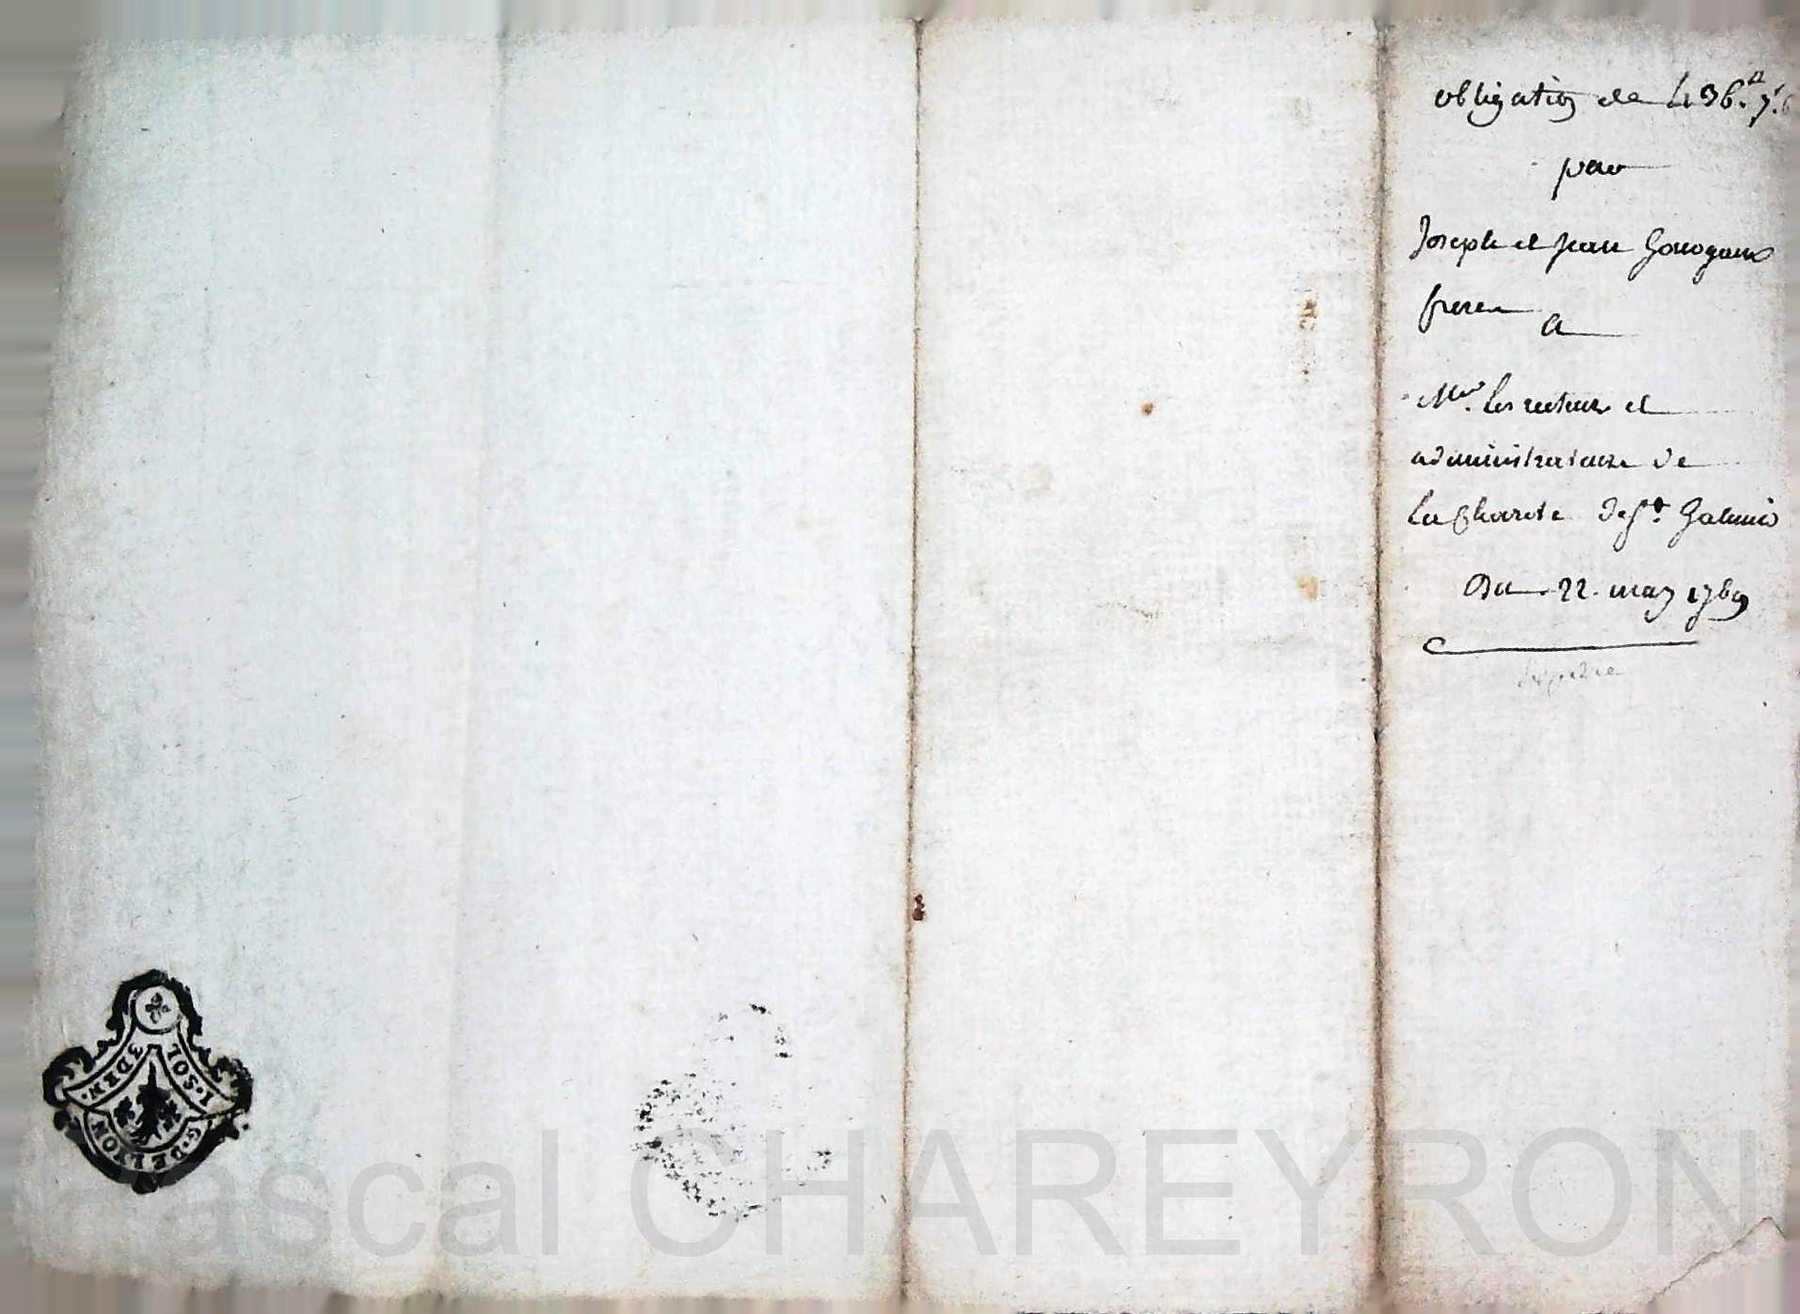 obligation de 436.tt 7.s 6
par
Joseph et Jean
freres a
Mrs. Les recteurs et
administrateurs de
La Charité de St. Galmier
Du 22. may 1769
1. SOL
3 DEN.
G. DE LYON
Pascal CHAREYRON